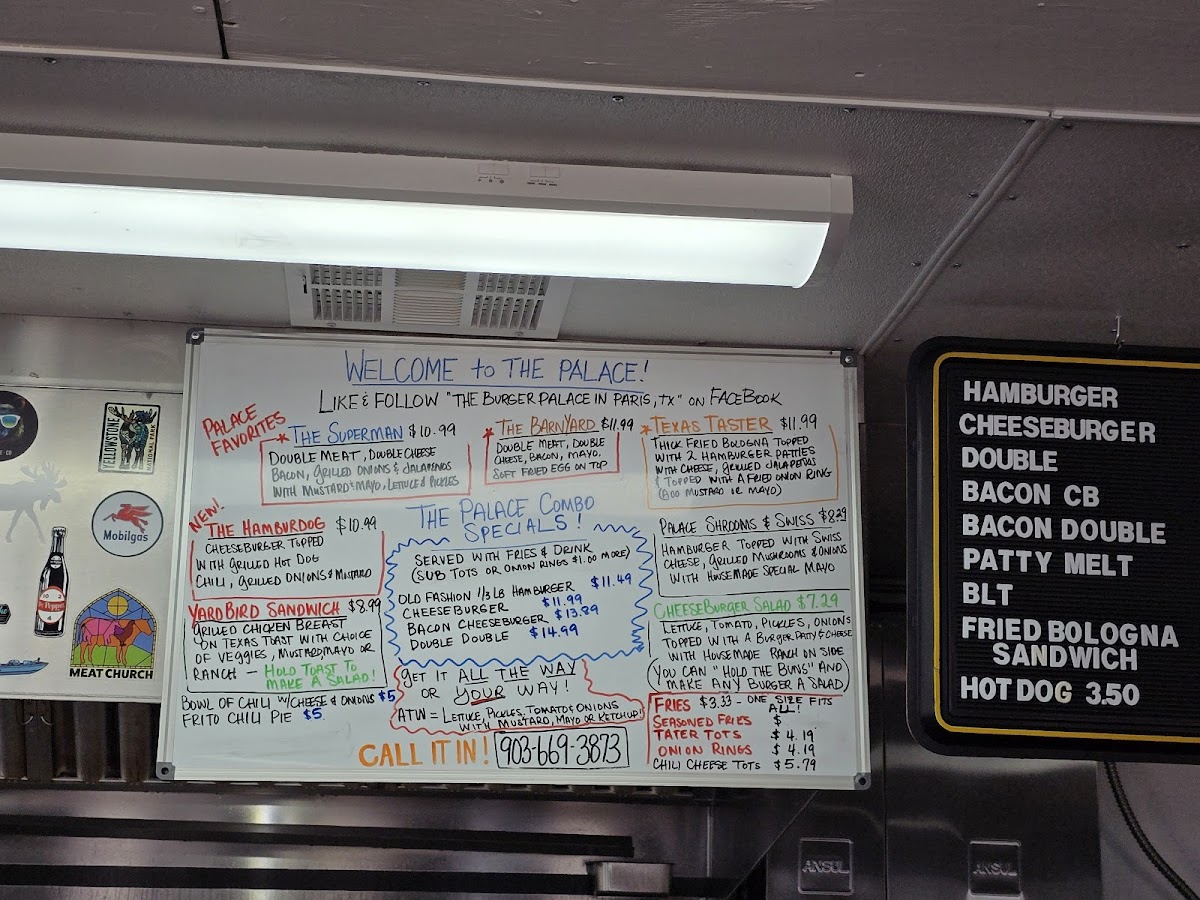 WELCOME to THE PALACE!
LIKE & FOLLOW "THE BURGER PALACE IN PARIS, TX" ON FACEBOOK
PALACE
FAVORITES
* THE SUPERMAN $10.99
DOUBLE MEAT, DOUBLE CHEESE
BACON, GRILLED ONIONS & JALAPENOS
WITH MUSTARD & MAYO, LETTUCE & PICKLES
* THE BARNYARD $11.99
DOUBLE MEAT, DOUBLE
CHEESE, BACON, MAYO,
SOFT FRIED EGG ON TOP
* TEXAS TASTER $11.99
THICK FRIED BOLOGNA TOPPED
WITH 2 HAMBURGER PATTIES
WITH CHEESE, GRILLED JALAPEÑOS
& TOPPED WITH A FRIED ONION RING
(BOO MUSTARD OR MAYO)
NEW!
THE HAMBURDOG $10.99
CHEESEBURGER TOPPED
WITH GRILLED HOT DOG
CHILI, GRILLED ONIONS & MUSTARD
YARDBIRD SANDWICH $8.99
GRILLED CHICKEN BREAST
ON TEXAS TOAST WITH CHOICE
OF VEGGIES, MUSTARD, MAYO OR
RANCH - HOLD TOAST TO
MAKE A SALAD!
BOWL OF CHILI W/CHEESE & ONIONS $5
FRITO CHILI PIE $5
THE PALACE COMBO
SPECIALS!
SERVED WITH FRIES & DRINK
(SUB TOTS OR ONION RINGS $1.00 MORE)
OLD FASHION 1/3 LB HAMBURGER $11.49
CHEESEBURGER $11.99
BACON CHEESEBURGER $13.89
DOUBLE DOUBLE $14.99
GET IT ALL THE WAY
OR YOUR WAY!
ATW = LETTUCE, PICKLES, TOMATO & ONIONS
WITH MUSTARD, MAYO OR KETCHUP!
CALL IT IN! 903-669-3873
PALACE SHROOMS & SWISS $8.29
HAMBURGER TOPPED WITH SWISS
CHEESE, GRILLED MUSHROOMS & ONIONS
WITH HOUSEMADE SPECIAL MAYO
CHEESEBURGER SALAD $7.29
LETTUCE, TOMATO, PICKLES, ONIONS
TOPPED WITH A BURGER PATTY & CHEESE
WITH HOUSEMADE RANCH ON SIDE
(YOU CAN "HOLD THE BUNS" AND
MAKE ANY BURGER A SALAD)
FRIES $3.33 - ONE SIZE FITS
ALL!
SEASONED FRIES $
TATER TOTS $4.19
ONION RINGS $4.19
CHILI CHEESE TOTS $5.79
HAMBURGER
CHEESEBURGER
DOUBLE
BACON CB
BACON DOUBLE
PATTY MELT
BLT
FRIED BOLOGNA
SANDWICH
HOT DOG 3.50
YELLOWSTONE
NATIONAL PARK
Mobilgas
Dr. Pepper
MEAT CHURCH
ANSUL
ANSUL